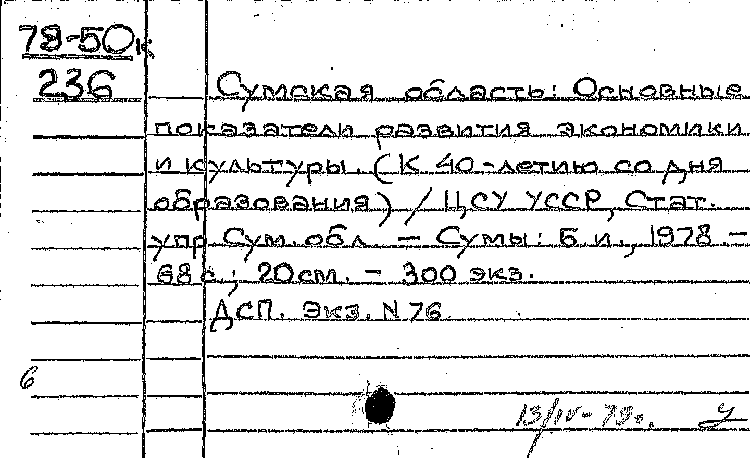 79-50к
236
Сумская область: Основные
показатели развития экономики
и культуры. (К 40-летию со дня
образования) / ЦСУ УССР, Стат.
упр. Сум. обл. — Сумы: Б. и., 1978. —
68 с.; 20 см. — 300 экз.
ДСП. Экз. N 76
6
13/IV-79г.